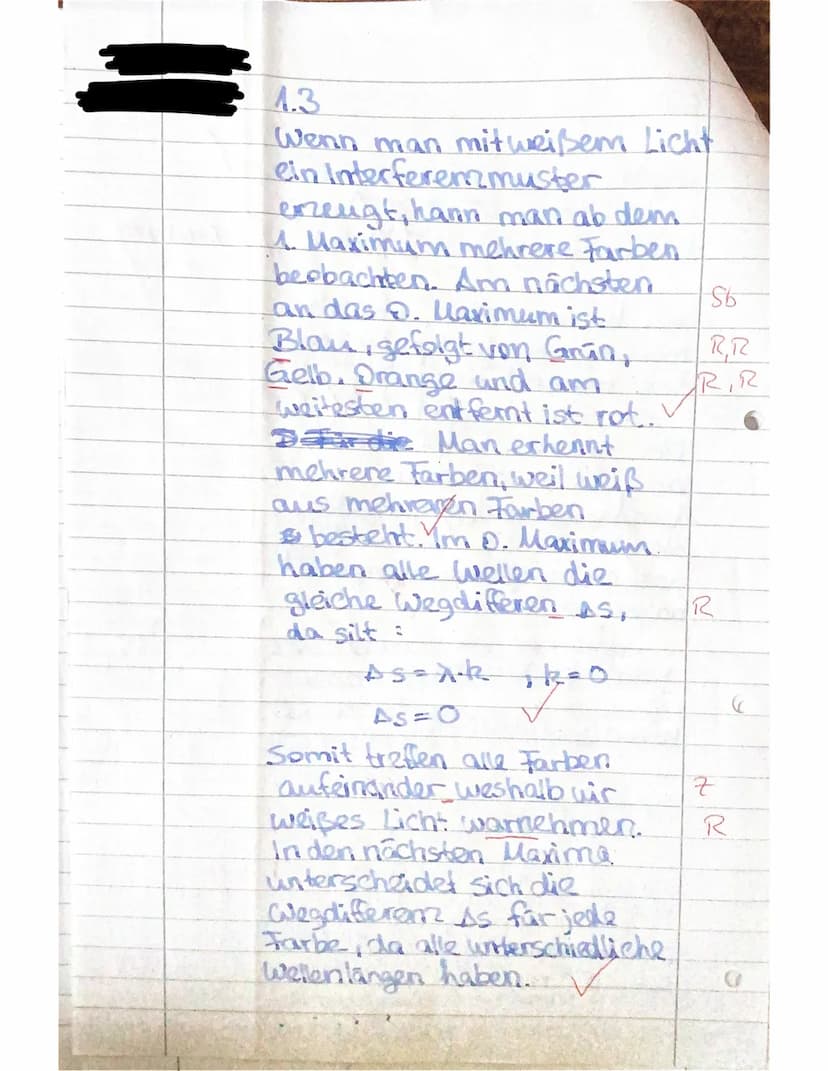 1.3
Wenn man mit weißem Licht
ein Interferenzmuster
erzeugt, kann man ab dem
1. Maximum mehrere Farben
beobachten. Am nächsten
an das 0. Maximum ist Sb
Blau, gefolgt von Grün, R,R
Gelb, Orange und am R,R
weitesten entfernt ist rot. 6
Für die Man erkennt
mehrere Farben, weil weiß
aus mehreren Farben
besteht. Im 0. Maximum
haben alle Wellen die
gleiche Wegdifferen Δs, R
da gilt:
Δs = λ·k , k = 0
Δs = 0
Somit treffen alle Farben
aufeinander weshalb wir Z
weißes Licht warnehmen. R
In den nächsten Maxima
unterscheidet sich die
Wegdifferenz Δs für jede
Farbe, da alle unterschiedliche
Wellenlängen haben.